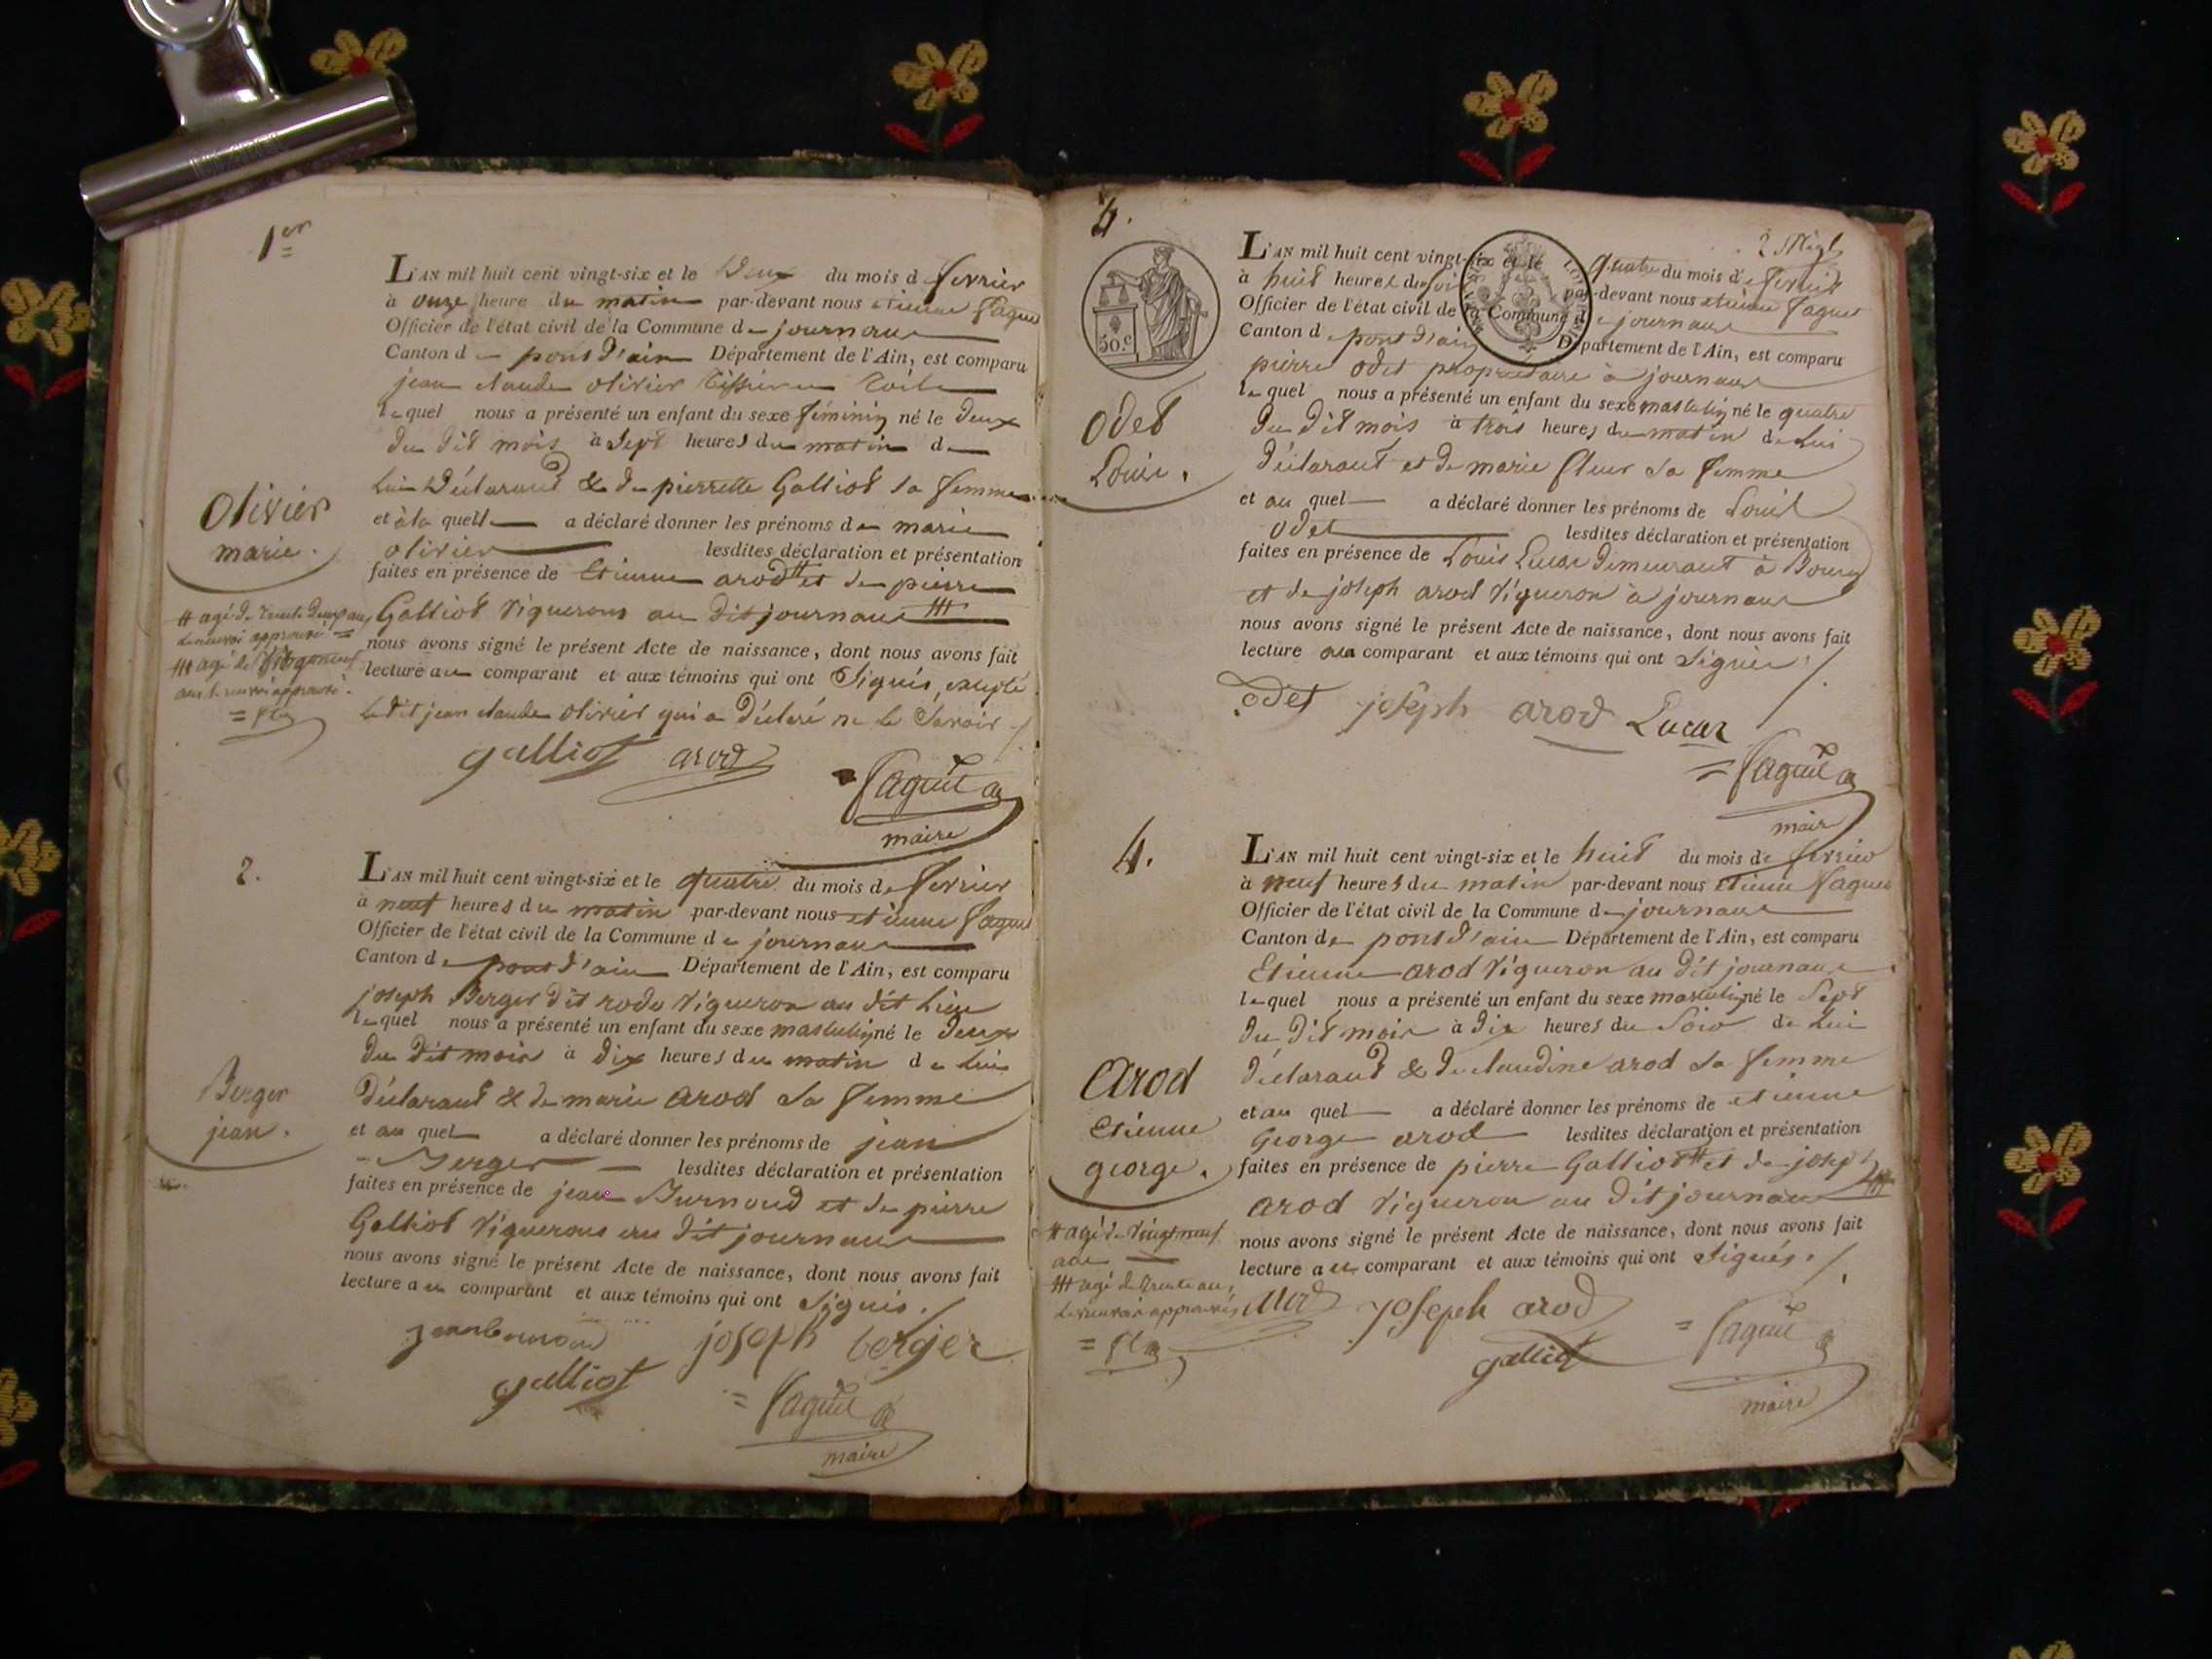 1er
L'AN mil huit cent vingt-six et le Deux du mois d fevrier
à onze heure du matin par-devant nous etienne faguet
Officier de l'état civil de la Commune de journaus
Canton de pont d'ain Département de l'Ain, est comparu
jean claude olivier tissier en toile
lequel nous a présenté un enfant du sexe féminin né le deux
du dit mois à sept heures du matin de
Lui Déclarant & de pierrette Galliot sa femme
et à la quelle a déclaré donner les prénoms de marie
olivier lesdites déclaration et présentation
faites en présence de Etienne arod # et de pierre
Galliot vignerons au dit journaus
nous avons signé le présent Acte de naissance, dont nous avons fait
lecture au comparant et aux témoins qui ont Signés, excepté
Le dit jean claude olivier qui a déclaré ne le Savoir
Olivier
marie.
# agé de trente Deux ans
Le renvoi approuvé
agé de
ans le renvoi approuvé
galliot arod
faguet
maire
2.
L'AN mil huit cent vingt-six et le quatre du mois de fevrier
à neuf heures du matin par-devant nous etienne faguet
Officier de l'état civil de la Commune de journaus
Canton de pont d'ain Département de l'Ain, est comparu
joseph Berger dit rode vigneron au dit Lieu
lequel nous a présenté un enfant du sexe masculin né le deux
du dit mois à dix heures du matin de Lui
Déclarant & de marie arod sa femme
et au quel a déclaré donner les prénoms de jean
Berger lesdites déclaration et présentation
faites en présence de jean Burnoud et de pierre
Galliot vignerons au dit journaus
nous avons signé le présent Acte de naissance, dont nous avons fait
lecture au comparant et aux témoins qui ont Signés.
Berger
jean.
joseph berger
galliot
faguet
maire
4.
50.c
L'AN mil huit cent vingt-six et le quatre du mois de fevrier
à huit heures du soir par-devant nous etienne faguet
Officier de l'état civil de la Commune de journaus
Canton de pont d'ain Département de l'Ain, est comparu
pierre odet propriétaire à journaus
lequel nous a présenté un enfant du sexe masculin né le quatre
du dit mois à trois heures du matin de Lui
déclarant et de marie fleur sa femme
et au quel a déclaré donner les prénoms de Louis
odet lesdites déclaration et présentation
faites en présence de Louis Lucar demeurant à Bourg
et de joseph arod vigneron à journaus
nous avons signé le présent Acte de naissance, dont nous avons fait
lecture au comparant et aux témoins qui ont Signés
Odet
Louis.
odet joseph arod Lucar
faguet
maire
4.
L'AN mil huit cent vingt-six et le huit du mois de fevrier
à neuf heures du matin par-devant nous etienne faguet
Officier de l'état civil de la Commune de journaus
Canton de pont d'ain Département de l'Ain, est comparu
Etienne arod vigneron au dit journaus
lequel nous a présenté un enfant du sexe masculin né le Sept
du dit mois à dix heures du Soir de Lui
déclarant & de claudine arod sa femme
et au quel a déclaré donner les prénoms de etienne
George arod lesdites déclaration et présentation
faites en présence de pierre Galliot # et de joseph
arod vigneron au dit journaus
nous avons signé le présent Acte de naissance, dont nous avons fait
lecture au comparant et aux témoins qui ont Signés.
Arod
Etienne
george.
# agé de vingt neuf
ans
agé de trente ans,
Le renvoi approuvés
arod joseph arod
galliot
faguet
maire